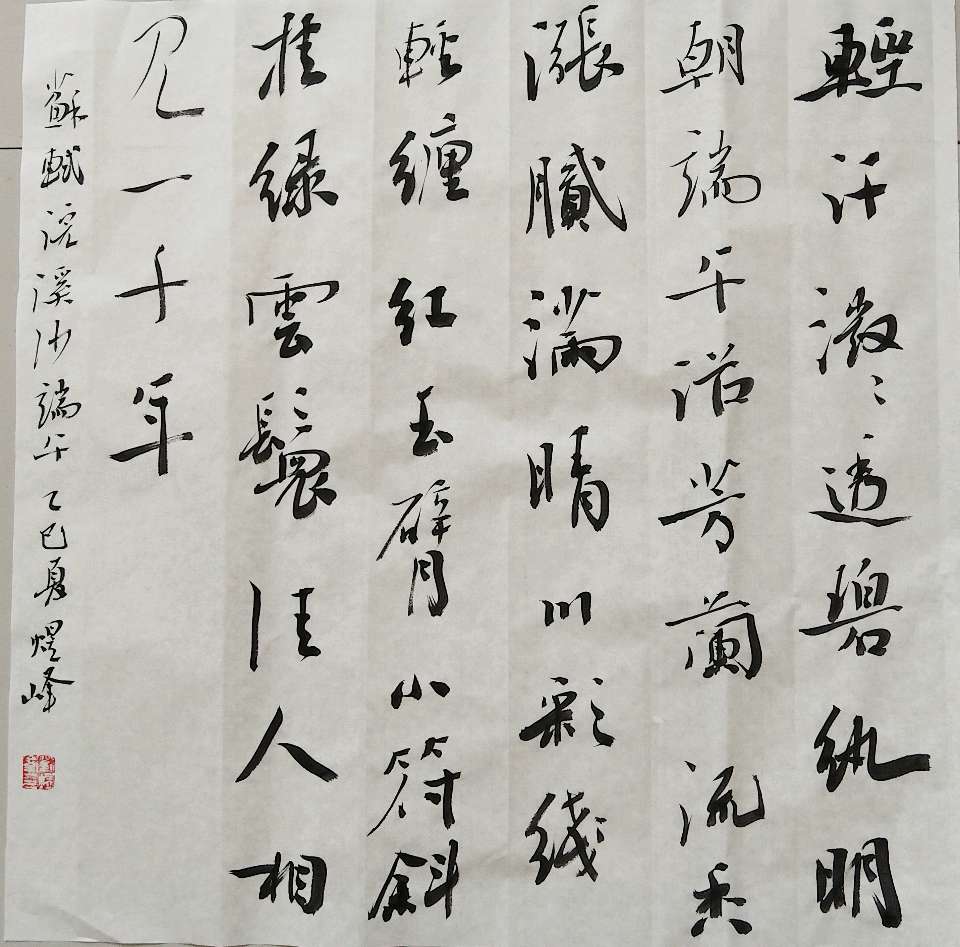 輕汗微〻透碧紈明
朝端午浴芳蘭流香
漲膩滿晴川彩綫
輕纏紅玉臂小符斜
挂綠雲鬟佳人相
見一千年
蘇軾浣溪沙端午乙巳夏煜峰